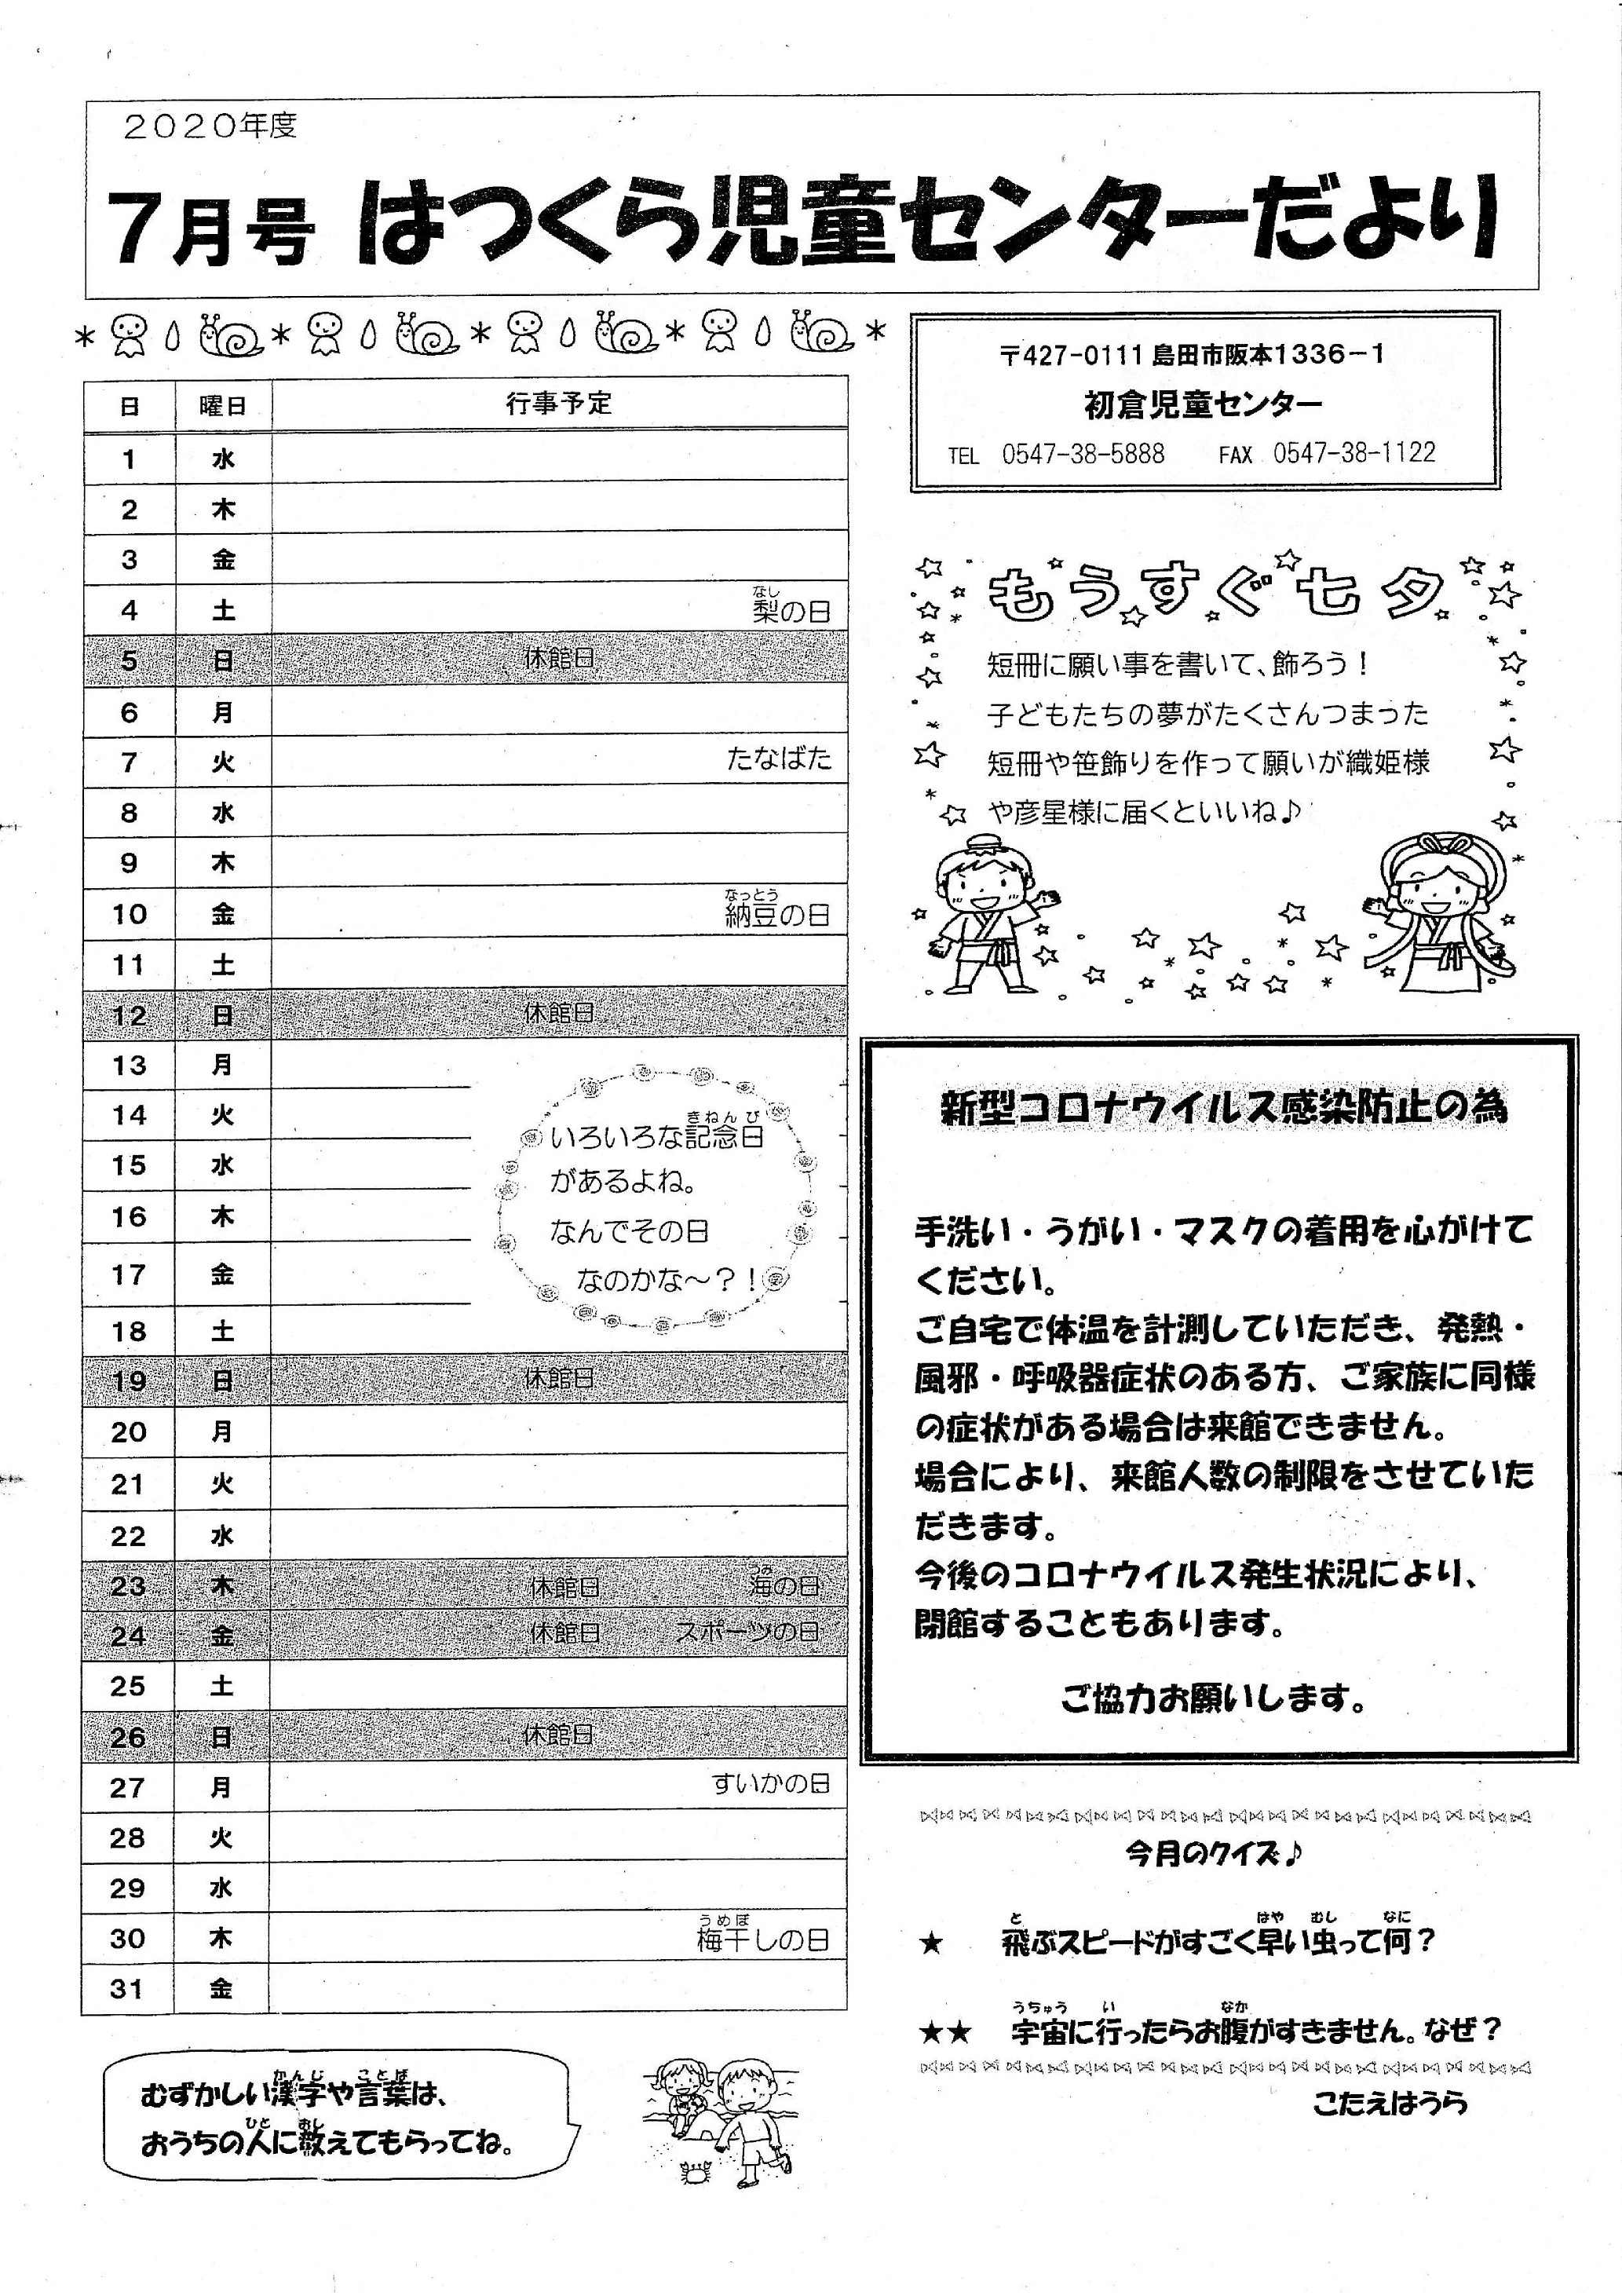 2020年度
7月号 はつくら児童センターだより
日 曜日 行事予定
1 水
2 木
3 金
4 土 梨の日
なし
5 日 休館日
6 月
7 火 たなばた
8 水
9 木
10 金 納豆の日
なっとう
11 土
12 日 休館日
13 月
14 火
15 水
16 木
17 金
18 土
きねんび
いろいろな記念日
があるよね。
なんでその日
なのかな～？！
19 日 休館日
20 月
21 火
22 水
23 木 休館日 海の日
うみ
24 金 休館日 スポーツの日
25 土
26 日 休館日
27 月 すいかの日
28 火
29 水
30 木 梅干しの日
うめぼ
31 金
かんじ ことば
むずかしい漢字や言葉は、
ひと おし
おうちの人に教えてもらってね。
〒427-0111 島田市阪本1336－1
初倉児童センター
TEL 0547-38-5888 FAX 0547-38-1122
もうすぐ七夕
短冊に願い事を書いて、飾ろう！
子どもたちの夢がたくさんつまった
短冊や笹飾りを作って願いが織姫様
や彦星様に届くといいね♪
新型コロナウイルス感染防止の為
手洗い・うがい・マスクの着用を心がけて
ください。
ご自宅で体温を計測していただき、発熱・
風邪・呼吸器症状のある方、ご家族に同様
の症状がある場合は来館できません。
場合により、来館人数の制限をさせていた
だきます。
今後のコロナウイルス発生状況により、
閉館することもあります。
ご協力お願いします。
今月のクイズ♪
と はや むし なに
★ 飛ぶスピードがすごく早い虫って何？
うちゅう い なか
★★ 宇宙に行ったらお腹がすきません。なぜ？
こたえはうら